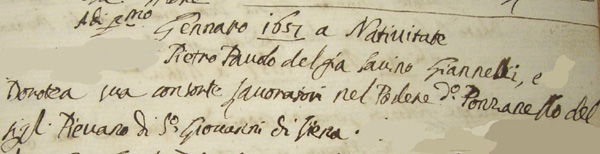 Adi pmo
Gennaro 1651 a Nativitate
Pietro Pavolo del già Savino Giannelli, e
Dorotea sua consorte lavoratori nel Podere do. Ponzanello del
sigl. Pievano di So. Giovanni di Siena.